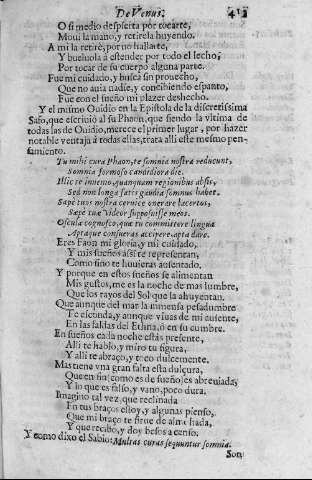 De Venus. 413
O si medio despierta por tocarte,
Moui la mano, y retirela huyendo.
A mi la retirè, por no hallarte,
Y bueluola à estender por todo el lecho,
Por tocar de su cuerpo alguna parte.
Fue mi cuidado, y busca sin prouecho,
Que no auia nadie, y concibiendo espanto,
Fue con el sueño mi plazer deshecho.
Y el mismo Ouidio en la Epistola de la discretissima
Safo, que escriuiò al su Phaon, que siendo la vltima de
todas las de Ouidio, merece el primer lugar, por hazer
notable ventaja à todas ellas, trata alli este mesmo pen-
samiento.
Tu mihi cura Phaon, te somnia nostra reducunt,
Somnia formoso candidiora die.
Illic te inuenio, quanquam regionibus absis,
Sed non longa satis gaudia somnus habet.
Sæpe tuos nostra ceruice onerare lacertos,
Sæpe tuæ videor supposuisse meos.
Oscula cognosco, quæ tu committere lingua
Aptaque consueras accipere, apta dare.
Eres Faon mi gloria, y mi cuidado,
Y mis sueños assi te representan,
Como sino te huuieras ausentado.
Y porque en estos sueños se alimentan
Mis gustos, me es la noche de mas lumbre,
Que los rayos del Sol que la ahuyentan.
Que aunque del mar la inmensa pesadumbre
Te esconda, y aunque viuas de mi ausente,
En las faldas del Ethna, ò en su cumbre.
En sueños cada noche estàs presente,
Alli te hablo, y miro tu figura,
Y alli te abraço, y toco dulcemente.
Mas tiene vna gran falta esta dulçura,
Que en fin (como es de sueño) es abreuiada,
Y lo que es falso, y vano, poco dura.
Imagino tal vez, que reclinada
En tus braços estoy, y algunas pienso,
Que mi braço te sirue de almohada,
Y que recibo, y doy besos à censo.
Y como dixo el Sabio: Multas curas sequuntur somnia.
Son